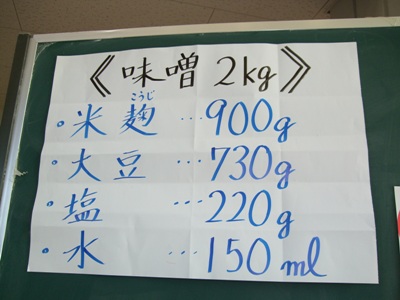 《味噌 2kg》
・米麹(こうじ) …900g
・大豆 …730g
・塩 …220g
・水 …150ml